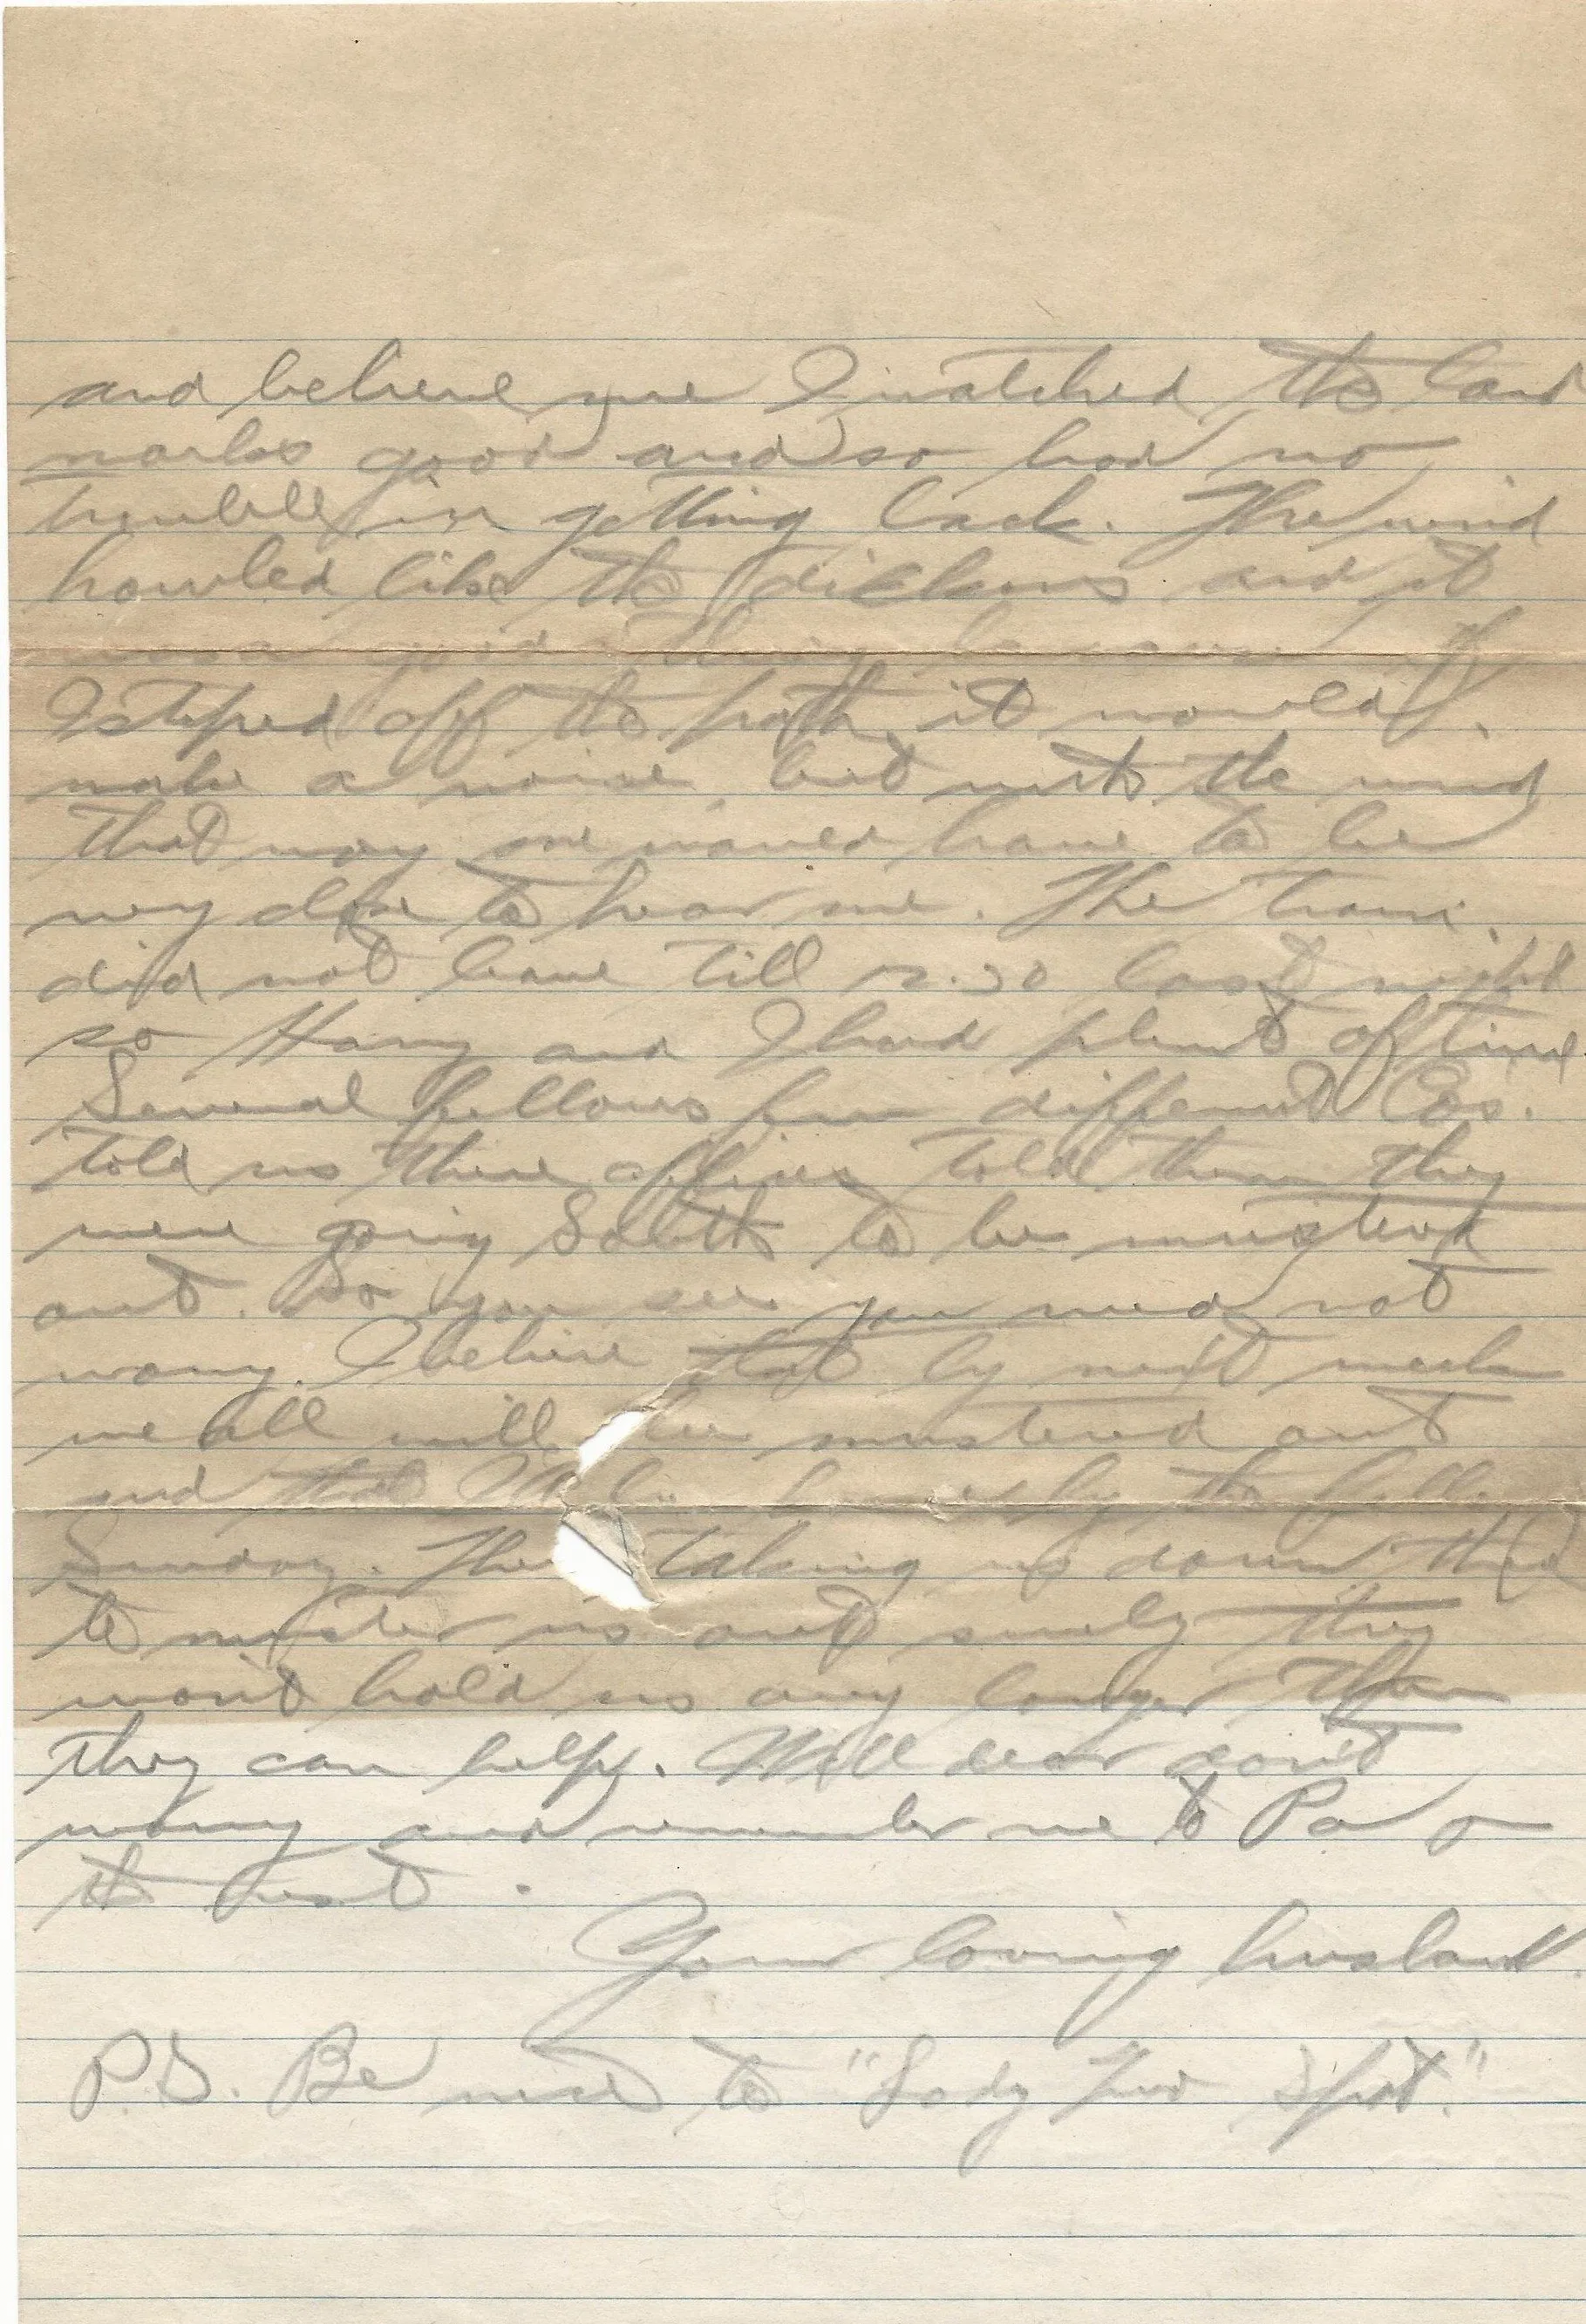 and believe me I watched the land
marks good and so had no
trouble in getting back. The wind
howled like the dickens and it
was a good thing because if
I steped off the path it would
make a noise but with the wind
that way one would have to be
very close to hear me. The train
did not leave till 12.30 last night
so Harry and I had plent of time
Several fellows from different Cos.
told us there offices told them they
were going South to be mustered
out. So you see you need not
worry. I believe that by next week
we all will be mustered out
and that I'll be by the
Sunday. Their taking us down there
to muster us out surely they
won't hold us any longer than
they can help. Well dear don't
worry and remember me to Pa
the rest.
Your loving husband.
P.S. Be nice to "Lady Two Spot."